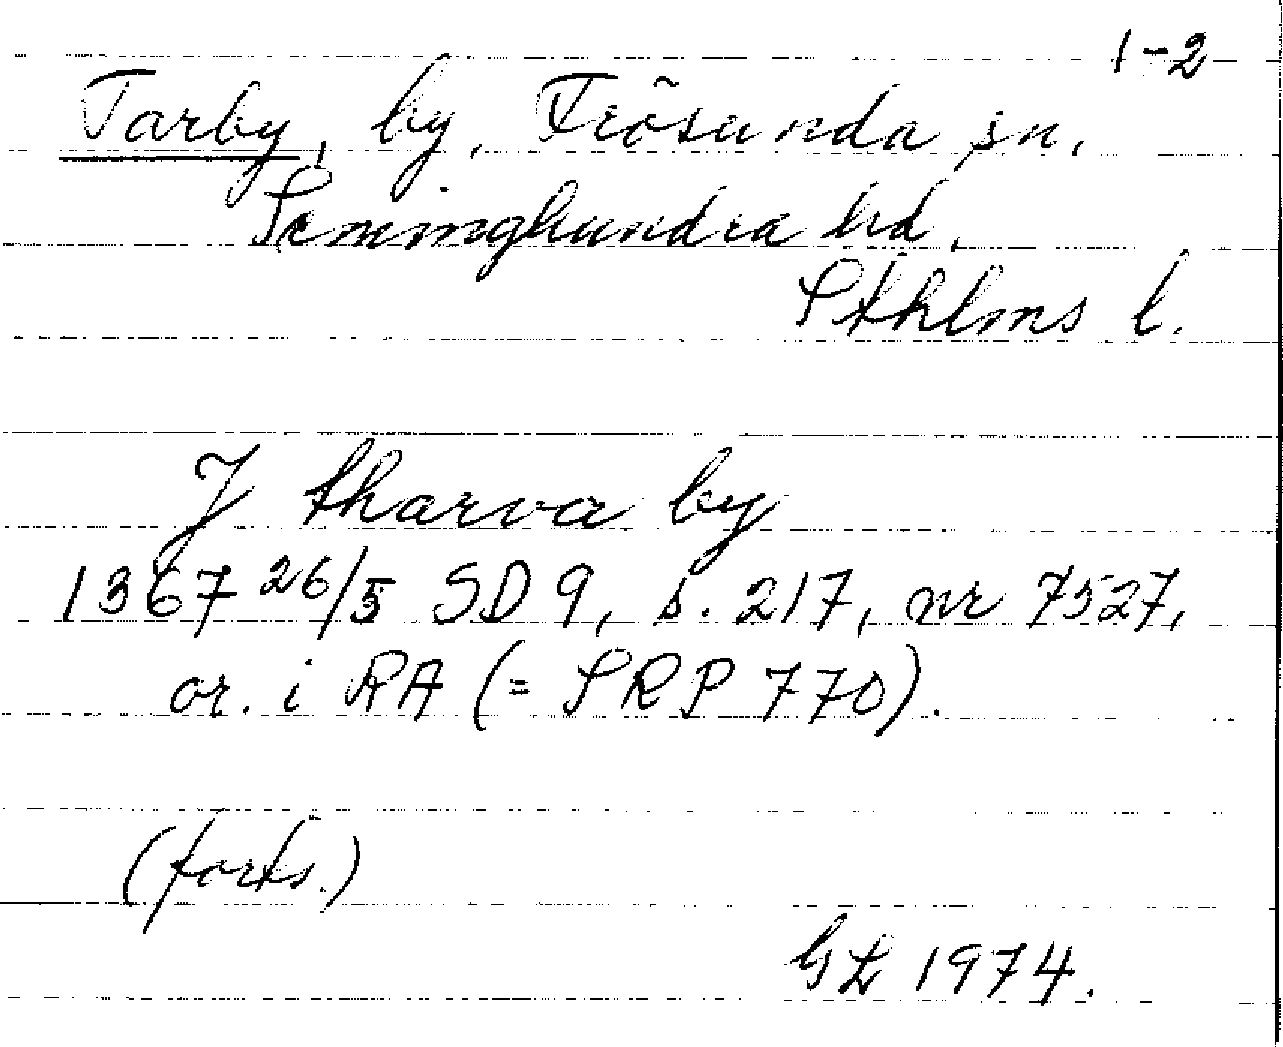 1-2
Tarby, by, Frösunda sn,
Seminghundra hd,
Sthlms l.
J tharva by
1367 26/5 SD 9, s. 217, nr 7527,
or. i RA (= SRP 770).
(forts.)
GL 1974.